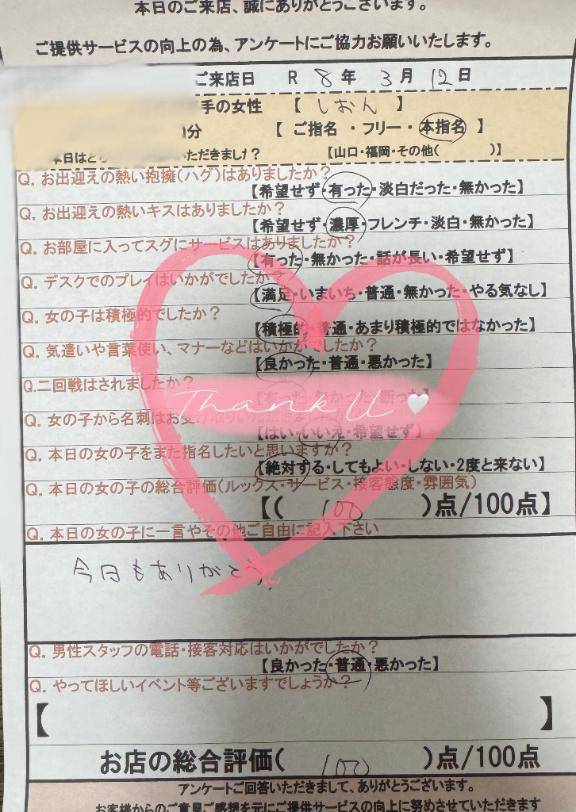 本日のご来店、誠にありがとうございます。
ご提供サービスの向上の為、アンケートにご協力お願いいたします。
ご来店日 R 8年 3月 12日
手の女性 【 しおん 】
分 【 ご指名 ・ フリー ・ 本指名 】
【山口・福岡・その他( )】
Q. お出迎えの熱い抱擁(ハグ)はありましたか?
【希望せず・有った・淡白だった・無かった】
Q. お出迎えの熱いキスはありましたか?
【希望せず・濃厚・フレンチ・淡白・無かった】
Q. お部屋に入ってスグにサービスはありましたか?
【有った・無かった・話が長い・希望せず】
Q. デスクでのプレイはいかがでしたか?
【満足・いまいち・普通・無かった・やる気なし】
Q. 女の子は積極的でしたか?
【積極的・普通・あまり積極的ではなかった】
Q. 気遣いや言葉使い、マナーなどはいかがでしたか?
【良かった・普通・悪かった】
Q.二回戦はされましたか?
Thank U
Q. 女の子から名刺は
【はい・いいえ・希望せず】
Q. 本日の女の子をまた指名したいと思いますか?
【絶対する・してもよい・しない・2度と来ない】
Q. 本日の女の子の総合評価(ルックス・サービス・接客態度・雰囲気)
【( 100 )点/100点】
Q. 本日の女の子に一言やその他ご自由に記入下さい
今日もありがとう。
Q. 男性スタッフの電話・接客対応はいかがでしたか?
【良かった・普通・悪かった】
Q. やってほしいイベント等ございますでしょうか?
【 】
お店の総合評価( 100 )点/100点
アンケートご回答いただきまして、ありがとうございます。
お客様からのご意見ご感想を元にご提供サービスの向上に努めさせていただきます